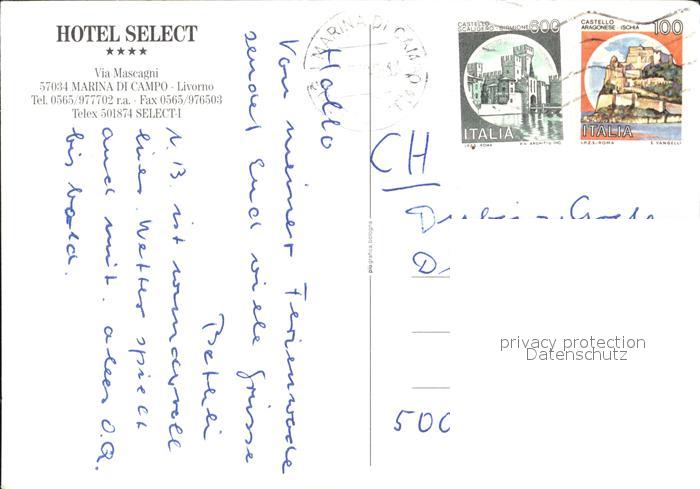 HOTEL SELECT
★★★★
Via Mascagni
57034 MARINA DI CAMPO - Livorno
Tel. 0565/977702 r.a. - Fax 0565/976503
Telex 501874 SELECT-I
MARINA DI CAMPO
CASTELLO
SCALIGERO SIRMIONE
600
ITALIA
I.P.Z.S. - ROMA
CASTELLO
ARAGONESE ISCHIA
100
ITALIA
I.P.Z.S. - ROMA
E. VANGELLI
Hallo
Von meiner Ferienwoche
sendet Euch viele Grüsse
Betheli
N.B. ist wundervoll
hier. Wetter spielt
auch mit. alles O.K.
bis bald.
CH
500
più grafica bologna
privacy protection
Datenschutz